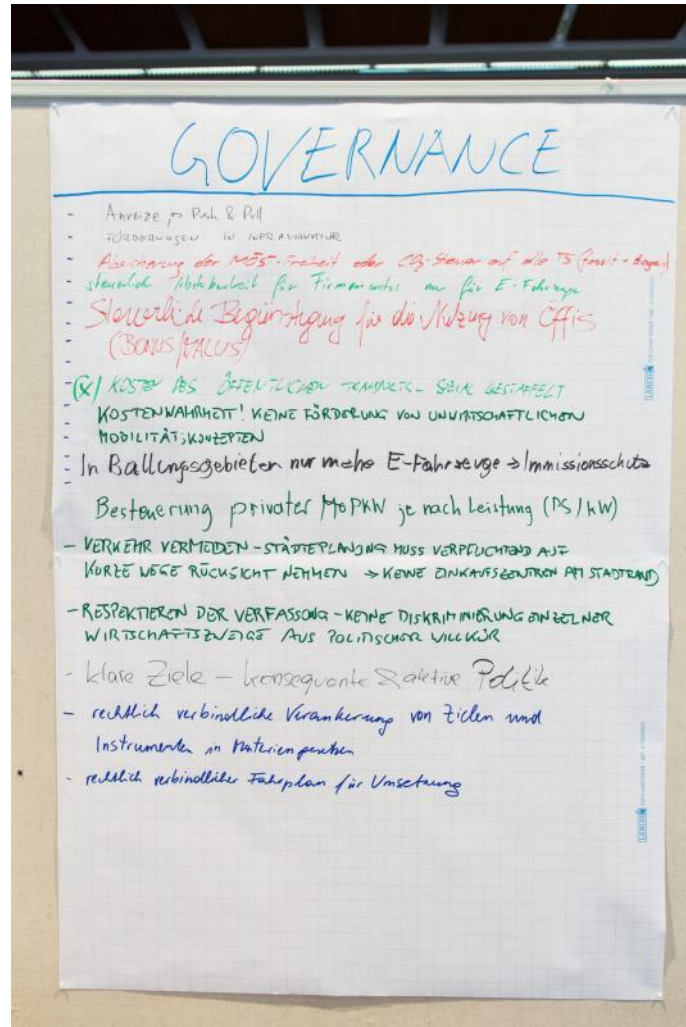 GOVERNANCE
- Anreize → Push & Pull
- FÖRDERUNGEN IN INFRASTRUKTUR
- Absicherung der MÖSt-Freiheit oder CO2-Steuer auf alle TS (fossil + biogen)
- steuerliche Absetzbarkeit für Firmenautos nur für E-Fahrzeuge
- Steuerliche Begünstigung für die Nutzung von Öffis
(BONUS/MALUS)
- (X) KOSTEN DES ÖFFENTLICHEN TRANSPORTS - SOZIAL GESTAFFELT
- KOSTENWAHRHEIT! KEINE FÖRDERUNG VON UNWIRTSCHAFTLICHEN
MOBILITÄTSKONZEPTEN
- In Ballungsgebieten nur mehr E-Fahrzeuge → Immissionsschutz
Besteuerung privater PKW je nach Leistung (PS/kW)
- VERKEHR VERMEIDEN - STÄDTEPLANUNG MUSS VERPFLICHTEND AUF
KURZE WEGE RÜCKSICHT NEHMEN → KEINE EINKAUFSZENTREN AM STADTRAND
- RESPEKTIEREN DER VERFASSUNG - KEINE DISKRIMINIERUNG EINZELNER
WIRTSCHAFTSZWEIGE AUS POLITISCHER WILLKÜR
- klare Ziele - konsequente & aktive Politik
- rechtlich verbindliche Verankerung von Zielen und
Instrumenten in Materiengesetzen
- rechtlich verbindlicher Fahrplan für Umsetzung
LANDRÉ
LANDRÉ